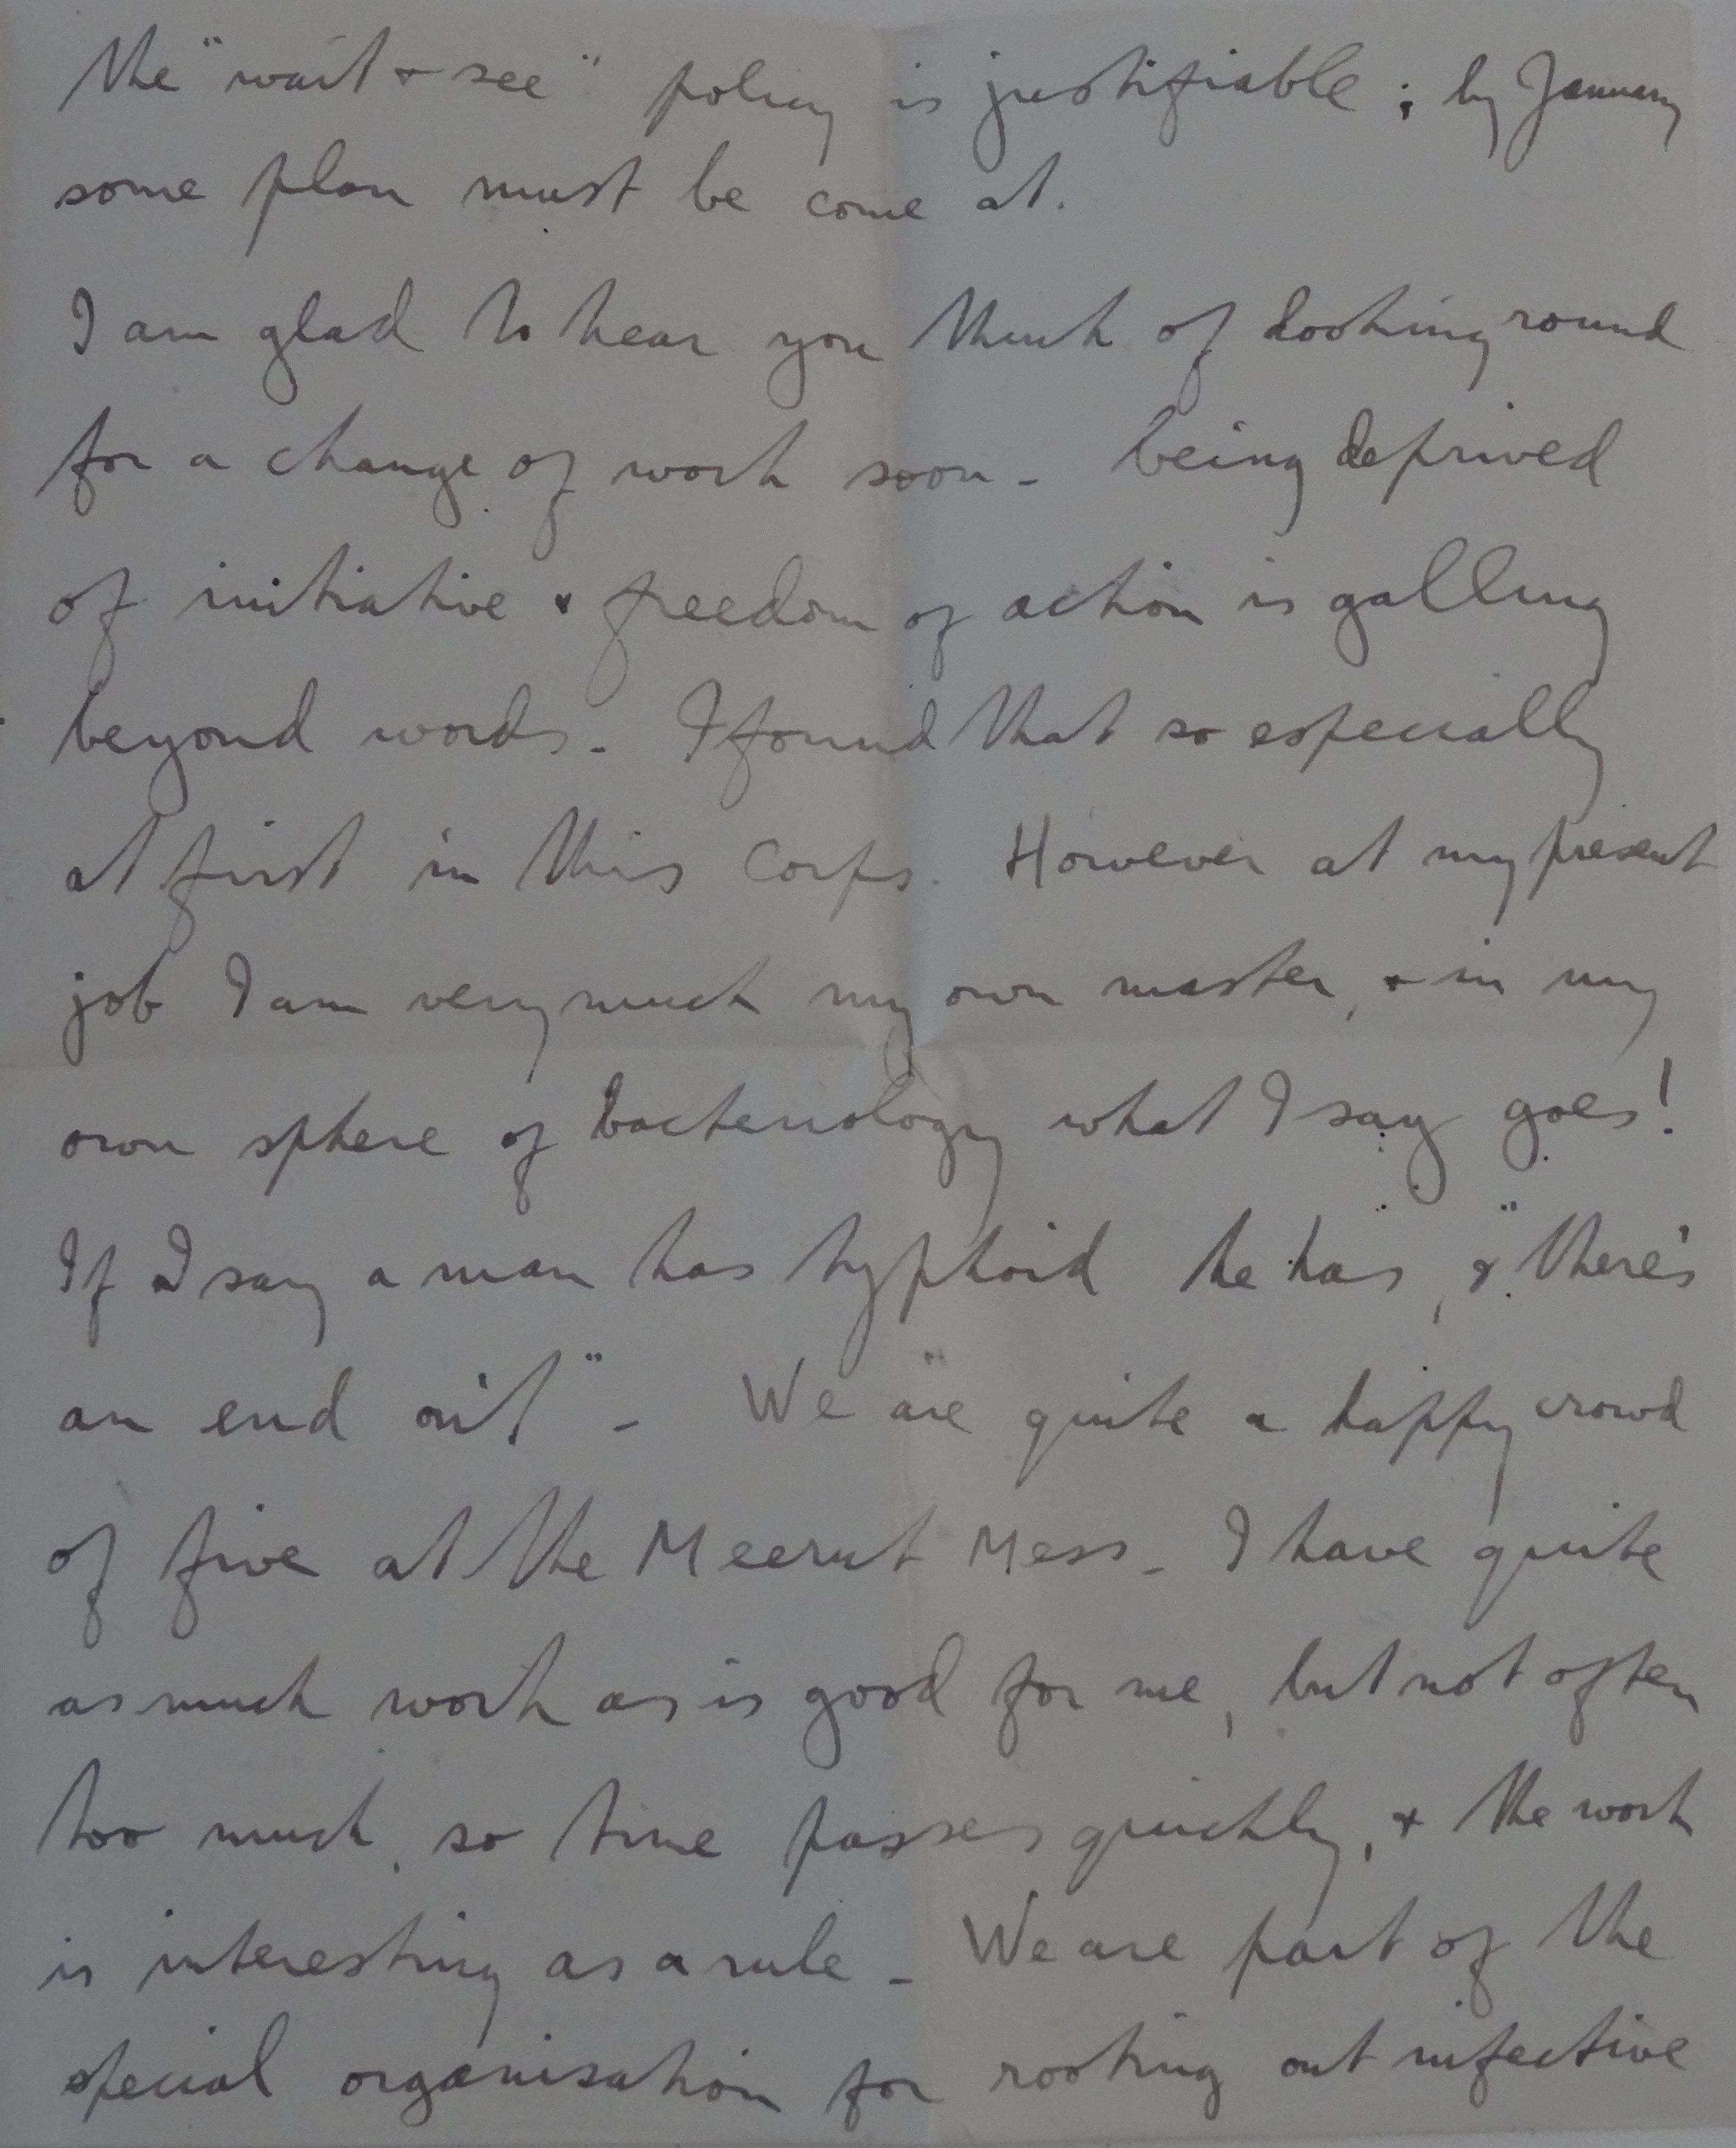 the "wait & see" policy is justifiable; by January
some plan must be come at.
I am glad to hear you think of looking round
for a change of work soon - being deprived
of initiative & freedom of action is galling
beyond words. I found that so especially
at first in this Corps. However at my present
job I am very much my own master, & in my
own sphere of bacteriology what I say goes!
If I say a man has typhoid he has, & "there's
an end on't" - We are quite a happy crowd
of five at the Meerut Mess - I have quite
as much work as is good for me, but not often
too much, so time passes quickly, & the work
is interesting as a rule - We are part of the
special organisation for rooting out infective